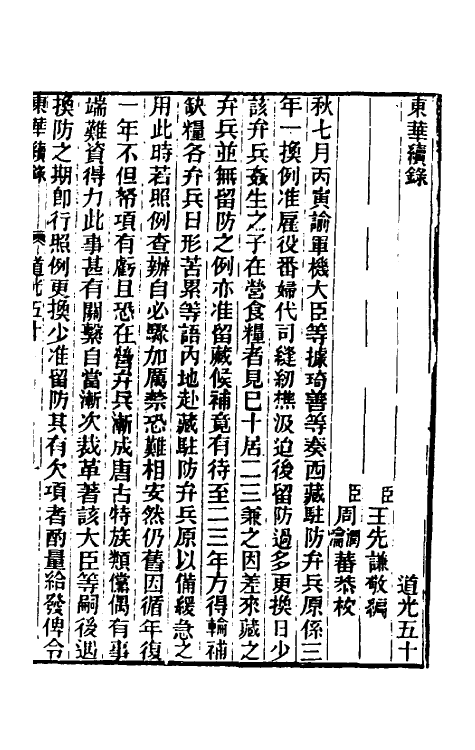 東華續錄
道光五十
臣王先謙敬編
臣周瀹蕃恭校
潤
秋七月丙寅諭軍機大臣等據琦善等奏西藏駐防弁兵原係三
年一換例准雇役番婦代司縫紉樵汲迨後留防過多更換日少
該弁兵姦生之子在營食糧者見已十居二三兼之因差來藏之
弁兵並無留防之例亦准留藏候補竟有待至二三年方得輪補
缺糧各弁兵日形苦累等語內地赴藏駐防弁兵原以備緩急之
用此時若照例查辦自必驟加厲禁恐難相安然仍舊因循年復
一年不但帑項有虧且恐在營弁兵漸成唐古特族類儻偶有事
端難資得力此事甚有關繫自當漸次裁革著該大臣等嗣後遇
換防之期卽行照例更換少准留防其有欠項者酌量給發俾令
東華續錄 道光五十